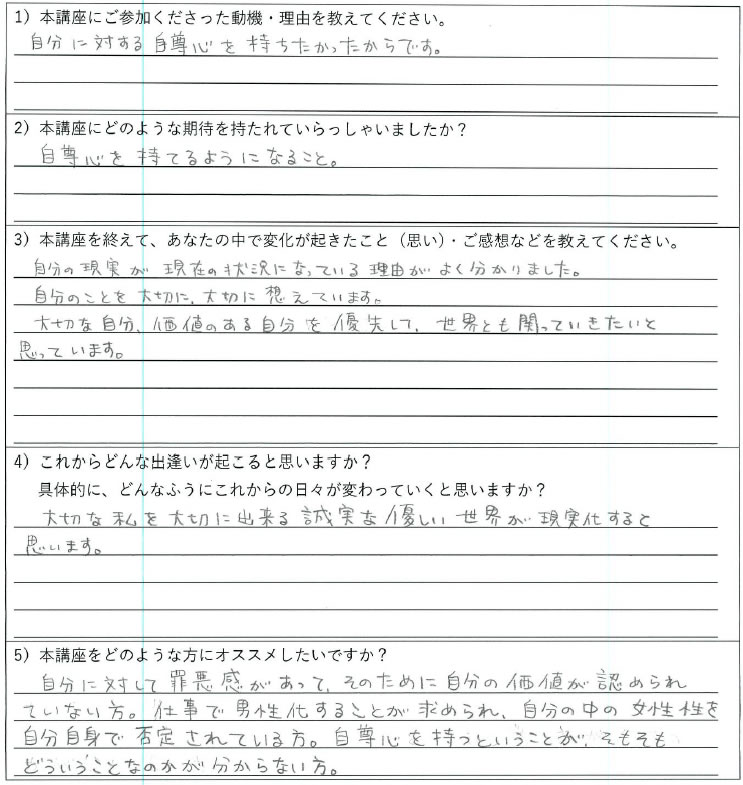 1）本講座にご参加くださった動機・理由を教えてください。
自分に対する自尊心を持ちたかったからです。
2）本講座にどのような期待を持たれていらっしゃいましたか？
自尊心を持てるようになること。
3）本講座を終えて、あなたの中で変化が起きたこと（思い）・ご感想などを教えてください。
自分の現実が現在の状況になっている理由がよく分かりました。
自分のことを大切に、大切に想えています。
大切な自分、価値のある自分を優先して、世界とも関っていきたいと
思っています。
4）これからどんな出逢いが起こると思いますか？
具体的に、どんなふうにこれからの日々が変わっていくと思いますか？
大切な私を大切に出来る誠実な優しい世界が現実化すると
思います。
5）本講座をどのような方にオススメしたいですか？
自分に対して罪悪感があって、そのために自分の価値が認められ
ていない方。仕事で男性化することが求められ、自分の中の女性性を
自分自身で否定されている方。自尊心を持つということが、そもそも
どういうことなのかが分からない方。